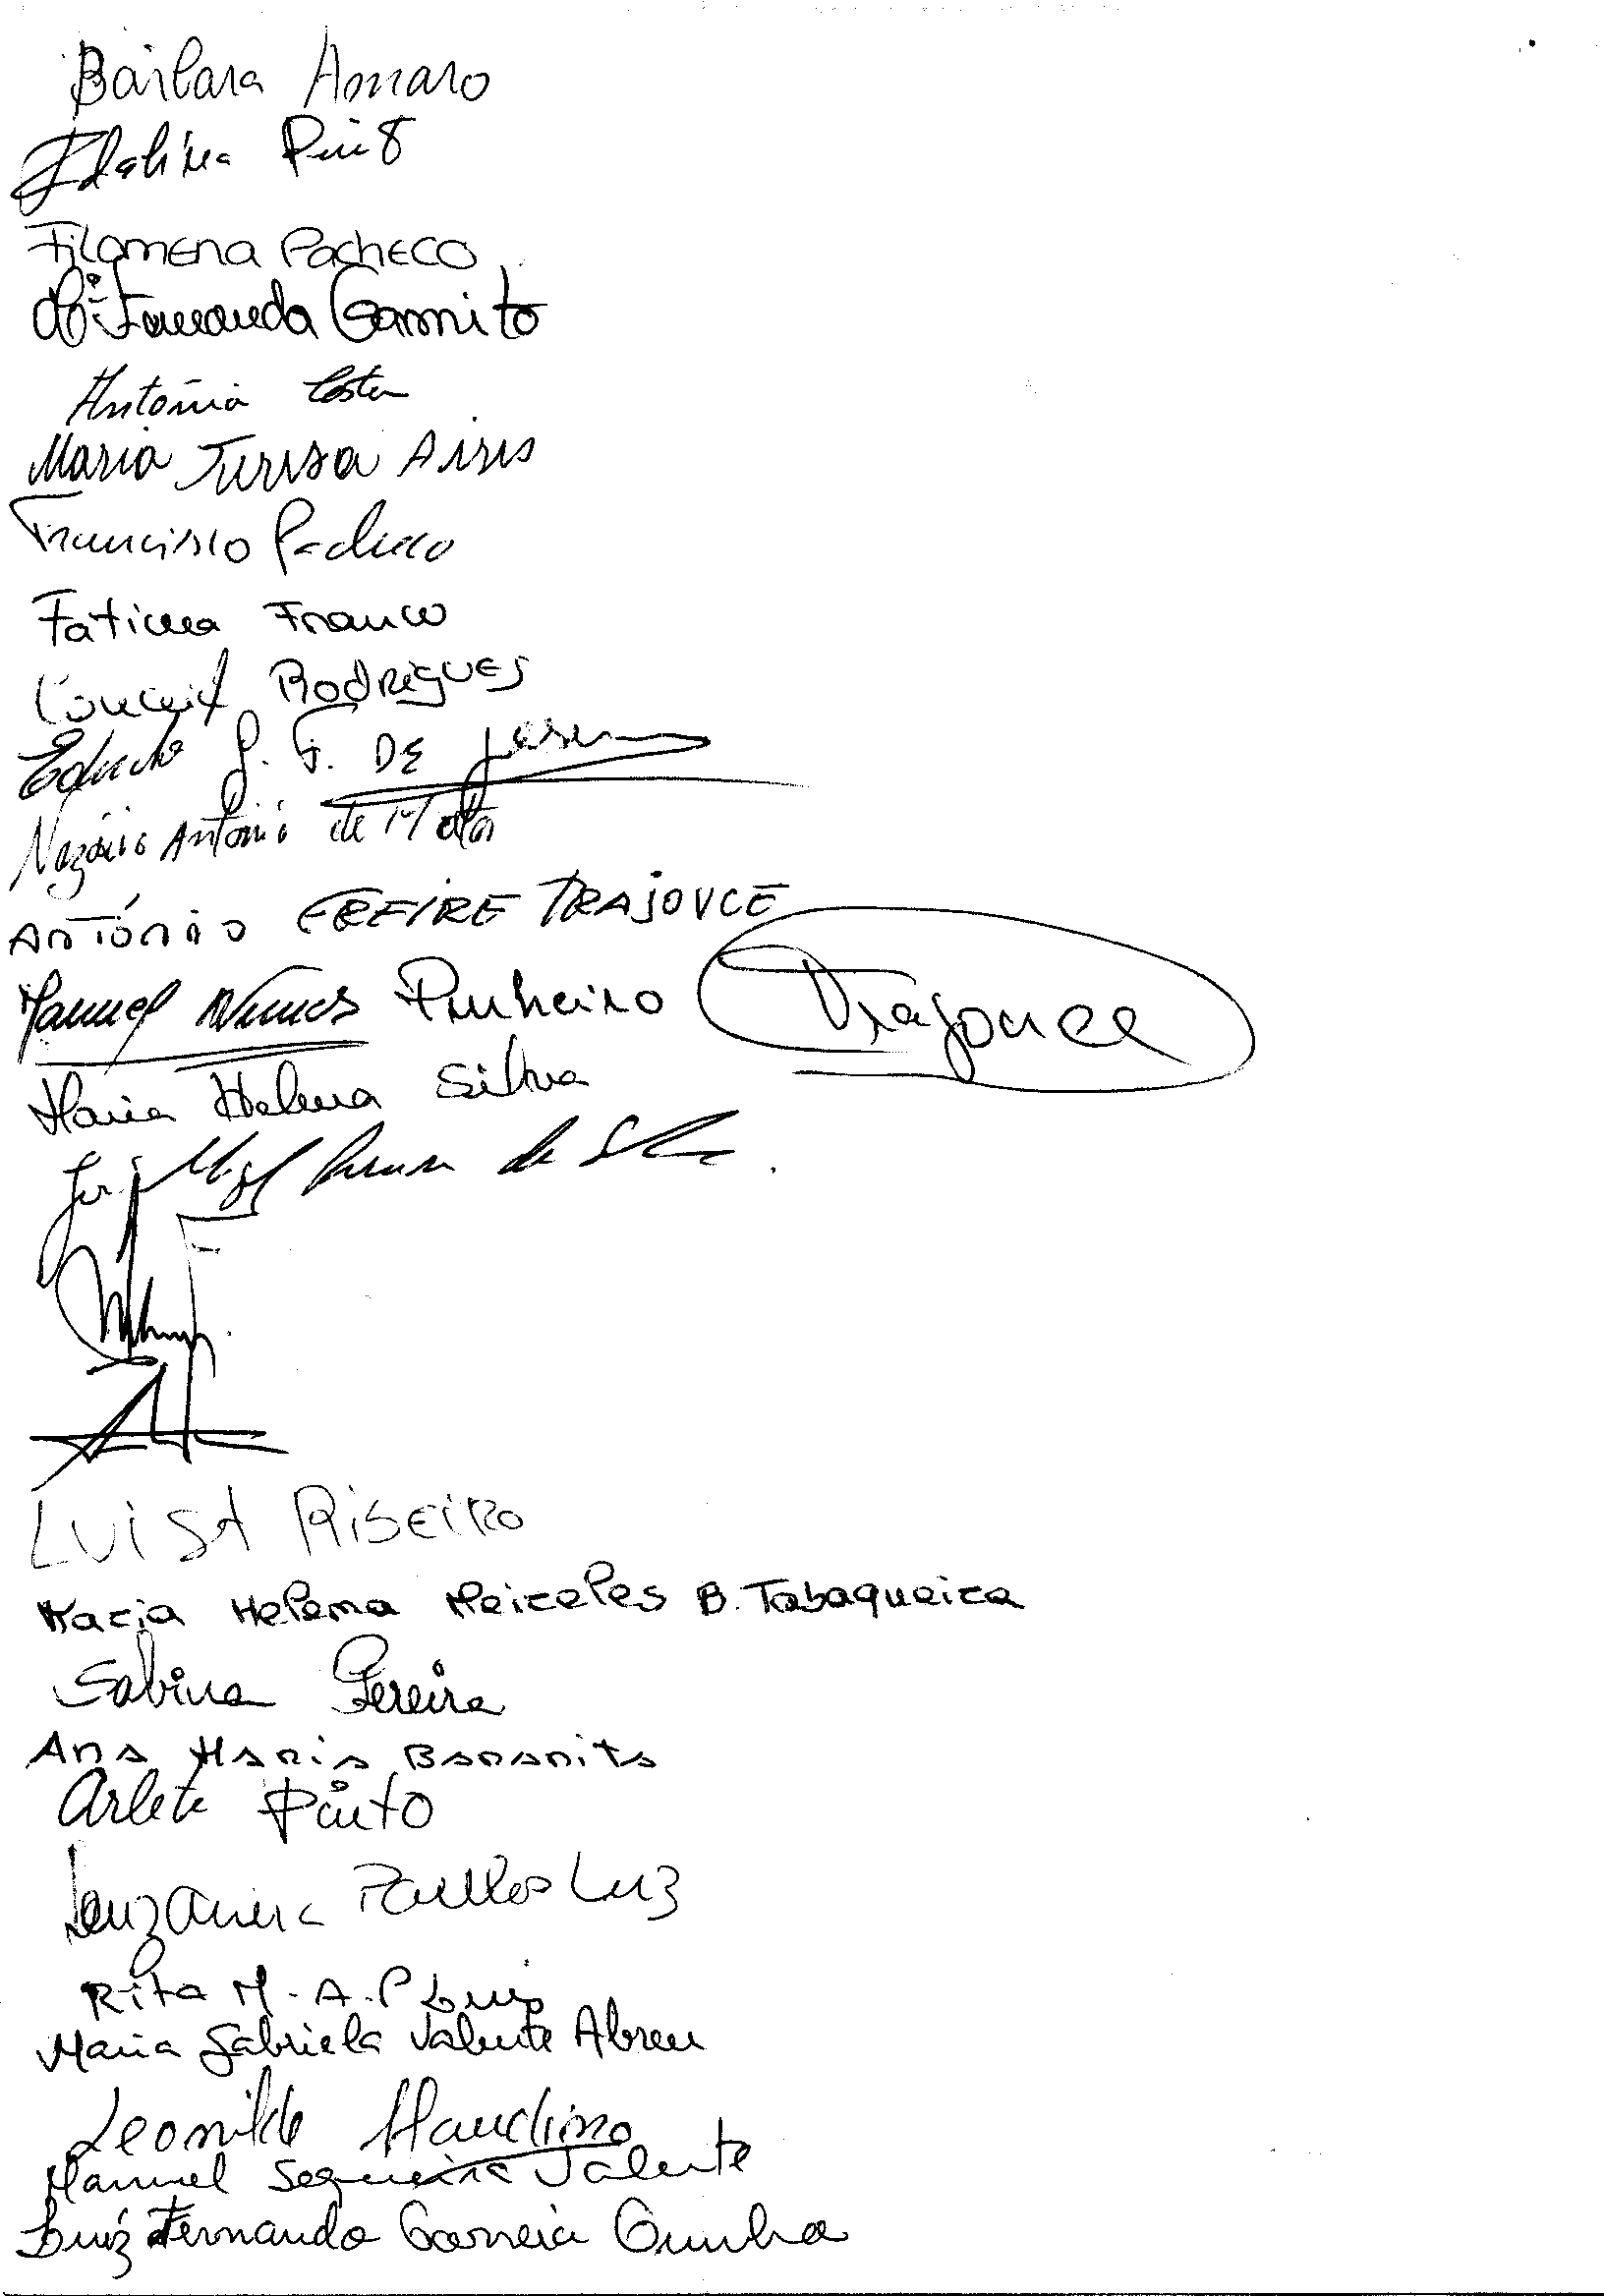 Bárbara Amaro
Idalina
Filomena Pacheco
Mª Fernanda Garnito
Antónia Costa
Maria Teresa Aires
Francisco Pacheco
Fatima Franco
Rodrigues
Eduardo J. F. DE Jesus
Nazário António da Mata
António FREIRE TRAJOUCE
Manuel Nunes Pinheiro
Trajouce
Maria Helena Silva
José Miguel da Silva
LUISA RIBEIRO
Maria Helena Meireles B. Tabaqueira
Sabina Pereira
Ana Maria Bananita
Arlete Pinto
Luz
Rita M. A. P Luis
Maria Gabriela Valente Abreu
Leonilde Claudino
Manuel Sequeira Valente
Luiz Fernando Correia Cunha